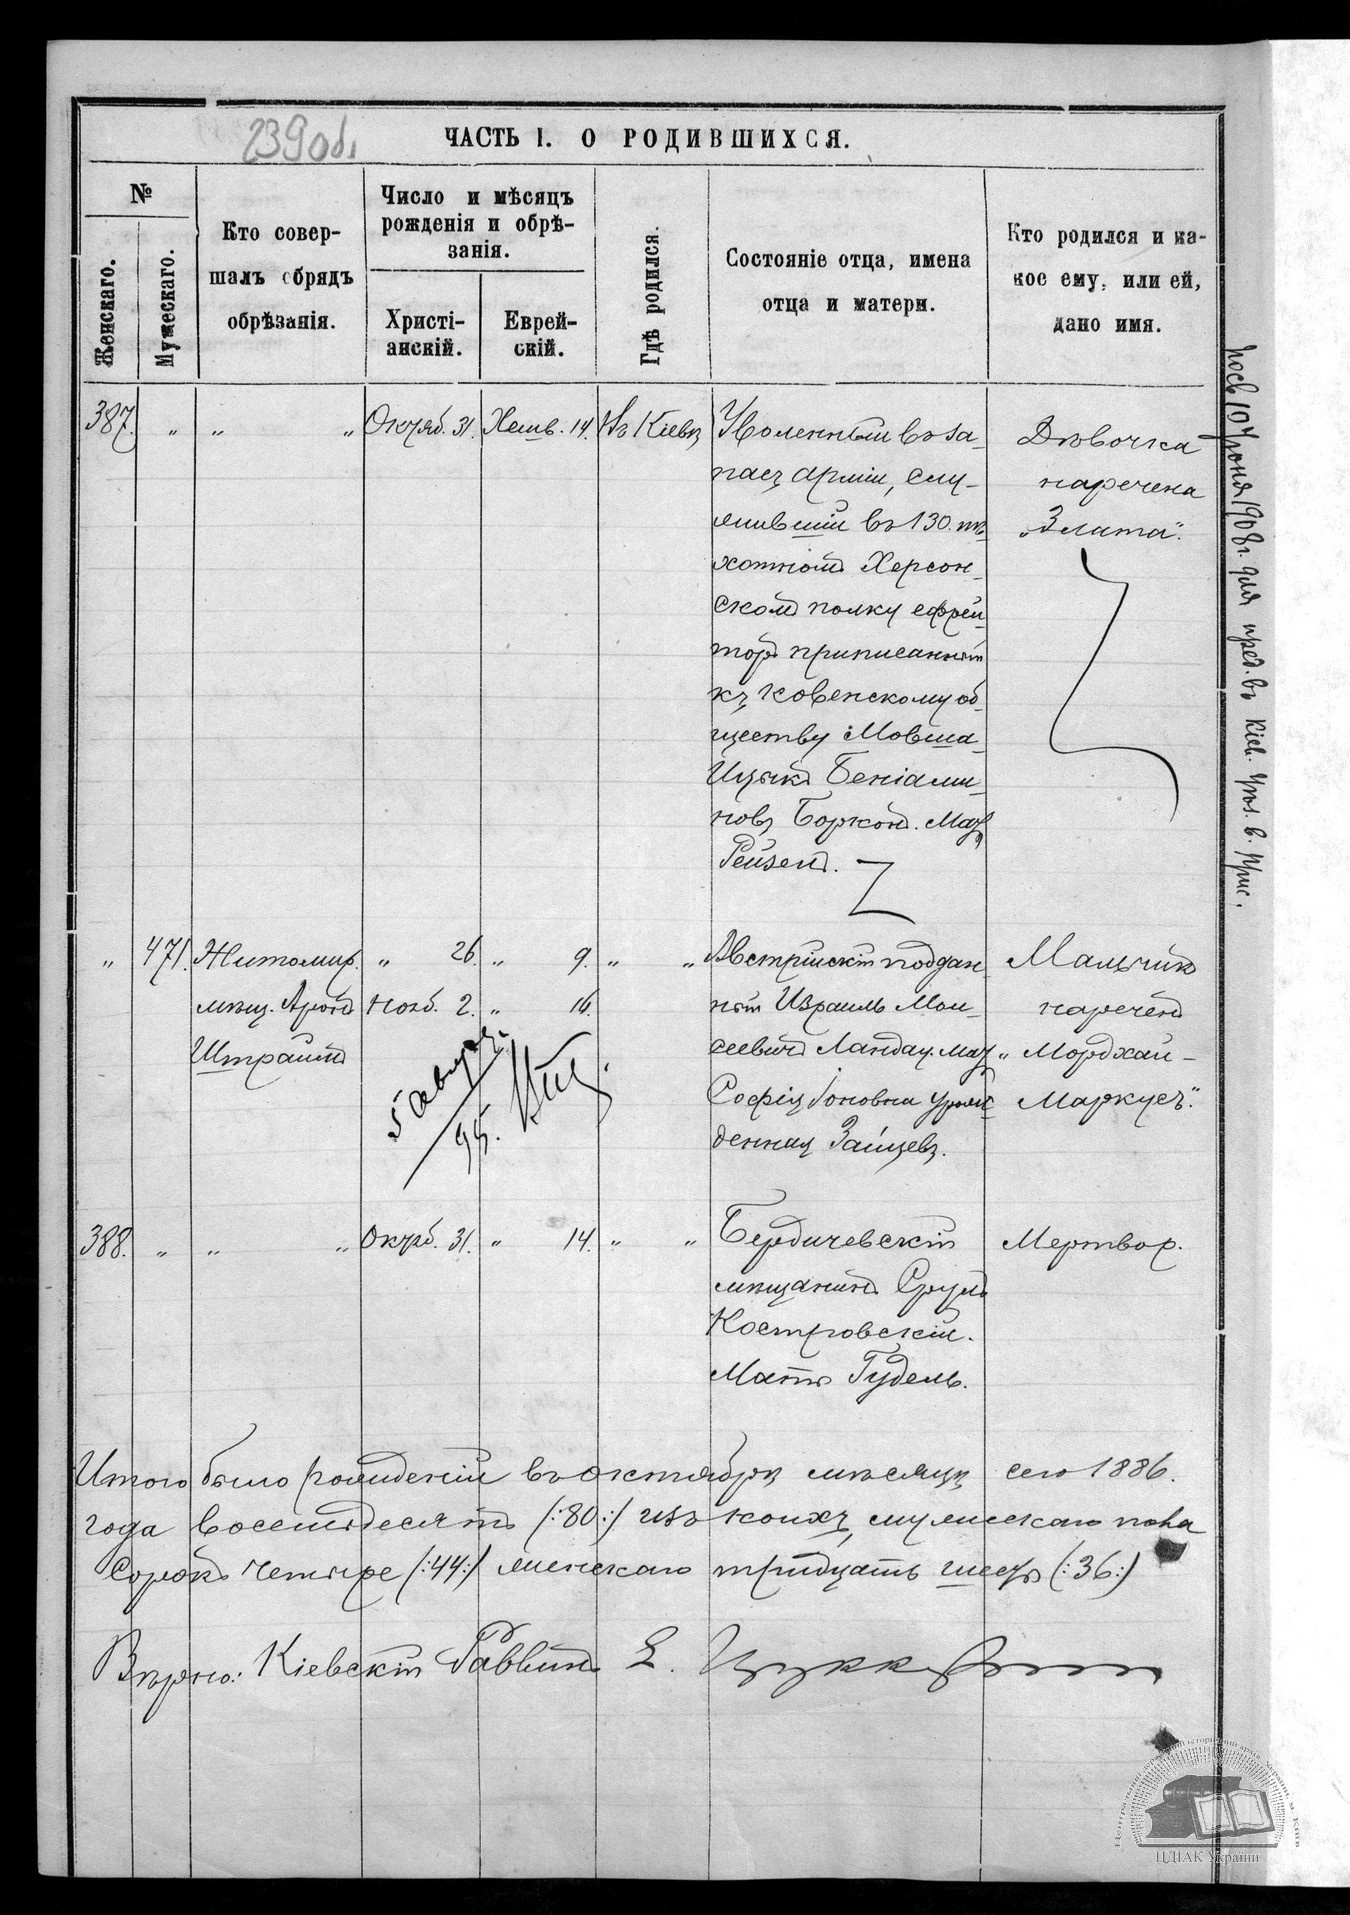 239об.
ЧАСТЬ I. О РОДИВШИХСЯ.
№
Женскаго.
Мужескаго.
Кто совер-
шалъ обрядъ
обрѣзанія.
Число и мѣсяцъ
рожденія и обрѣ-
занія.
Христі-
анскій.
Еврей-
скій.
Гдѣ родился.
Состояніе отца, имена
отца и матери.
Кто родился и ка-
кое ему, или ей,
дано имя.
387. " " " Октяб. 31. Хешв. 14. Въ Кіевѣ
Уволенный въ за-
пасъ арміи, слу-
жившій въ 130. пѣ-
хотномъ Херсон-
скомъ полку ефрей-
торъ приписанный
къ Ковенскому об-
ществу Мовша-
Ицыкъ Беніами-
новъ Борхон. Мать
Рейзель.
Дѣвочка
наречена
"Злата".
" 471. Житомир. " 26. " 9. " "
мѣщ. Аронъ Нояб. 2. " 16.
Штраймъ
5 август.
95.
Австрійскій поддан-
ный Израиль Мои-
сеевичъ Ландау. Мать
Софія Іоновна урож-
денная Зайцевъ.
Мальчикъ
нареченъ
"Мордхай-
Маркусъ".
388. " " " Октяб. 31. " 14. " "
Бердичевскій
мѣщанинъ Сруль
Костровскій.
Мать Гудель.
Мертвор.
Итого было рожденій въ октябрѣ мѣсяцѣ сего 1886.
года восемьдесятъ (:80:) изъ коихъ, мужескаго пола
сорокъ четыре (:44:) женскаго тридцать шесть (:36:)
Вѣрно: Кіевскій Раввинъ Е. Цуккерманъ
10 Іюня 1908 г. для пред. въ Кіев. в. Прис.
ЦДІАК України